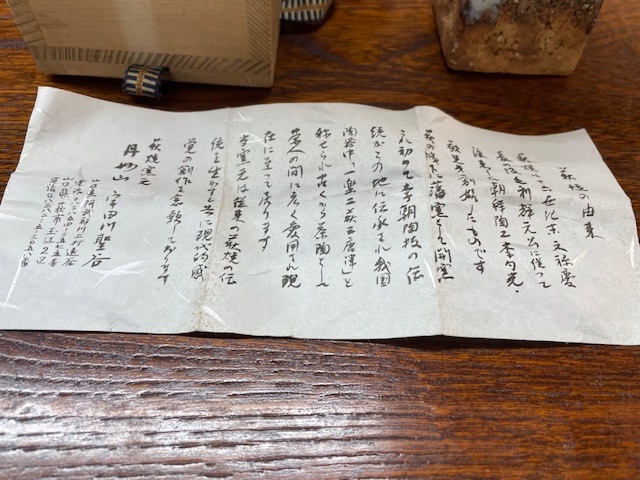 萩焼の由来
萩焼は十六世紀末文禄慶
長役、毛利輝元公に従って
渡来した朝鮮陶工李勺光・
敬兄弟が創始したものです
萩城下に藩窯として開窯
これ初めて李朝陶技の伝
統がこの地に伝承され我国
陶器中「一楽二萩三唐津」と
称せられ古くから茶陶として
茶人の間に広く愛用され現
在に至って居ります
当窯元は従来の萩焼の伝
統を生かすと共に現代的感
覚の創作を念願しております
萩焼窯元
丹如山 宇田川聖谷
山口県阿武郡川上村遠谷
山口県萩市玉江